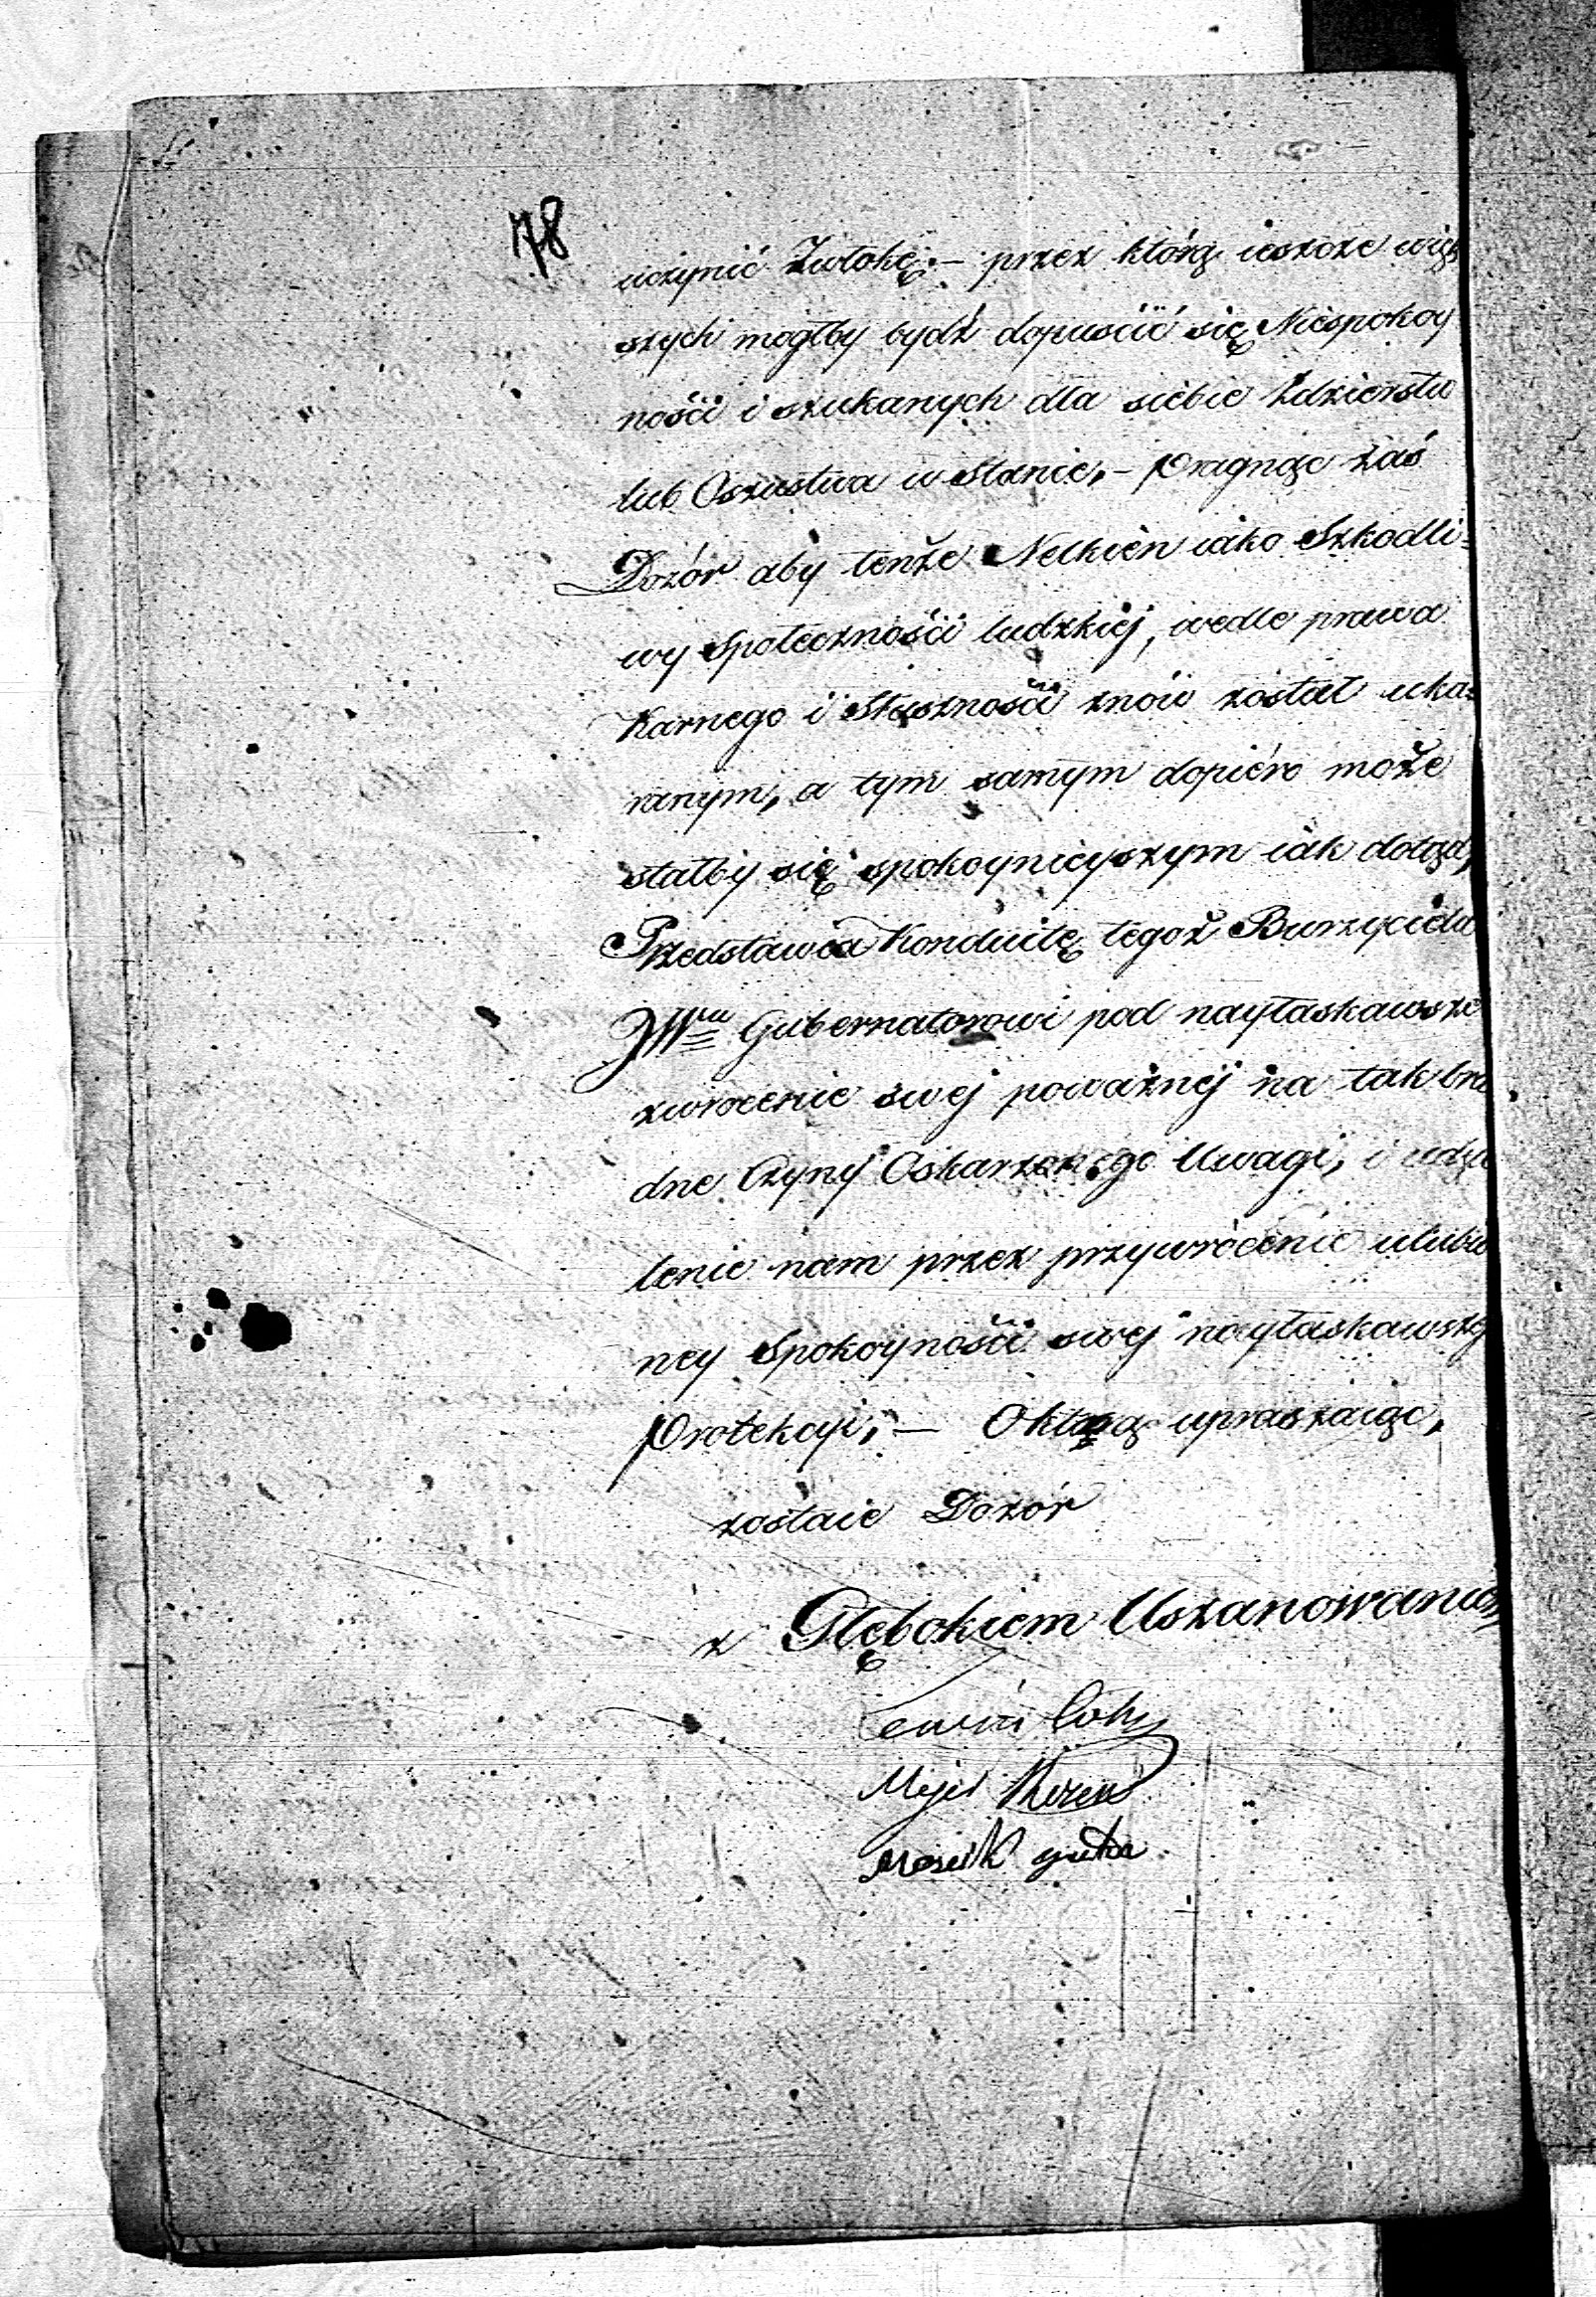 78
uczynić Zwłokę.– przez którą ieszcze więk
szych mogłby bydź dopuścić się Niespokoy
nośći i szukanych dla siebie Zdzierstw
lub Oszustwa w Stanie,– Pragnąc zaś
Dozór aby tenże Nelkien iako Szkodli=
wy Społecznośći ludzkiej, wedle prawa
Karnego i Słusznośći znów został uka=
ranym, a tym samym dopiéro może
stałby się spokoynieyszym iak dotąd,
Przedstawia Konduitę tegoż Burzyciela
JWmu Gubernatorowi pod nayłaskawsze
zwrocenie swej poważnéj na tak bru
dne Czyny Oskarzonego Uwagi, i udzie
lenie nam przez przywrócenie ulubio
ney Spokoynośći swej nayłaskawszey
Protekcyi,– O którą upraszaiąc,
zostaie Dozór
z Głębokiem Uszanowaniem